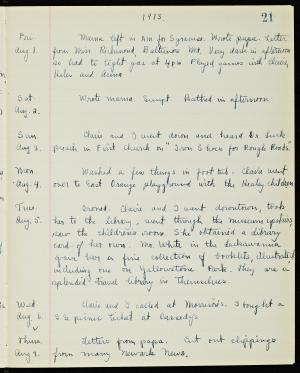 1913.
21
Fri Mama left in Am for Syracuse. Wrote papa. Letter
Aug 1. from Miss Richmond, Baltimore Md. Very dark in afternoon
so had to light gas at 4 pm. Played games with Claire,
Helen and
Sat Wrote mama. Swept. Bathed in afternoon.
Aug. 2.
Sun. Claire and I went down and heard Dr. Luck
Aug 3. preach in First church on "Iron Shoes for Rough Roads"
Mon Washed a few things in foot tub. Claire went
Aug. 4. over to East Orange playground with the Healey children
Tues. Ironed. Claire and I went downtown, took
Aug. 5. her to the library, went through the museum upstairs,
saw the children's room. She obtained a library
card of her own. Mr. White in the Lackawanna
gave her a fine collection of booklets, illustrated,
including one on Yellowstone Park. They are a
splendid travel library in themselves.
Wed Claire and I called at Morrison's. I bought a
Aug 6. S.S. picnic ticket at
Thurs. Letters from papa. Cut out clippings
Aug 7. from many Newark News.